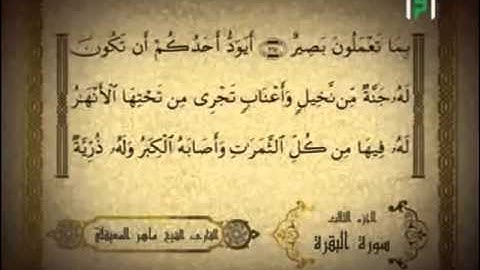 بِمَا تَعْمَلُونَ بَصِيرٌ ۝ أَيَوَدُّ أَحَدُكُمْ أَن تَكُونَ
لَهُۥ جَنَّةٌ مِّن نَّخِيلٍ وَأَعْنَابٍ تَجْرِى مِن تَحْتِهَا ٱلْأَنْهَـٰرُ
لَهُۥ فِيهَا مِن كُلِّ ٱلثَّمَرَٰتِ وَأَصَابَهُ ٱلْكِبَرُ وَلَهُۥ ذُرِّيَّةٌ
الجزء الثالث
سورة البقرة
القارئ الشيخ ماهر المعيقلي